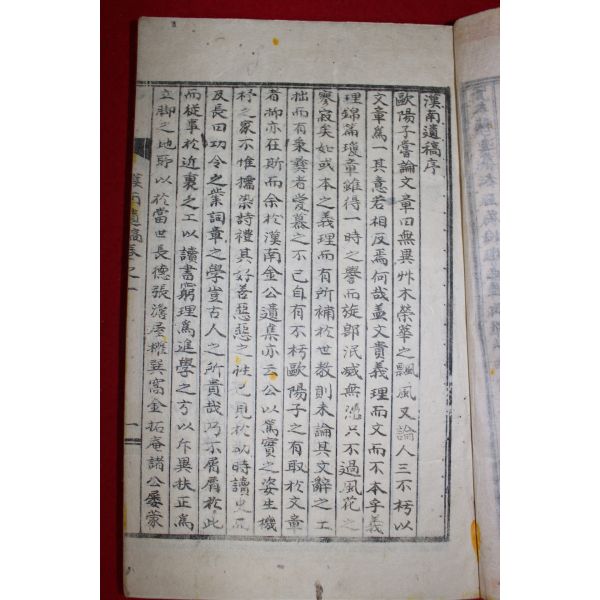 漢南遺稿序
歐陽子嘗論文章曰無異艸木榮華之飄風又論人三不朽以
文章爲一其意若相反焉何哉盖文貴義理而文而不本乎義
理錦篇瓊章雖得一時之譽而旋卽泯滅無慿只不過風花之
寥寂矣如或本之義理而有所補於世敎則未論其文辭之工
拙而有秉彛者愛慕之不已自有不朽歐陽子之有取於文章
者抑亦在斯而余於漢南金公遺集亦云公以篤實之姿生
杼之家不惟擩染詩禮其好善惡惡之性已見於幼時讀史
及長曰功令之業詞章之學豈古人之所貴哉乃不屑屑於此
而從事於近裏之工以讀書窮理爲進學之方以斥異扶正爲
立脚之地所以於當世長德張澹屋權巽窩金拓庵諸公屢蒙
漢南遺稿卷之一
一